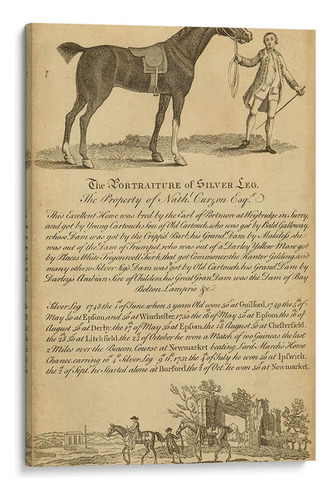 The PORTRAITURE of SILVER LEG.
The Property of Nath.l Curzon Esq.r
This Excellent Horse was bred by the Earl of Portmore at Weybridge in Surry,
and got by Young Cartouch Son of Old Cartouch, who was got by Bald Galloway,
whose Dam was got by the Cripple Barb, his Grand Dam by Makeless, she
was out of the Dam of Trumpet, who was out of a Darley Yellow Mare got
by Places White
many other; Silver Legs Dam was got by Old Cartouch his Grand Dam by
Darley's Arabian Sire of Childers, his Great Gran Dam was the Dam of Bay
Bolton, Lamprie &c.
Silver Leg 1748 the 7th of June when 5 years Old won 50 at Guilford, 1749 the
May 50 at Epsom, and 50 at Winchester, 1750 the of May 50 at Epsom, the of
August 50 at Derby, the of May 50 at Epsom, the 18 August 50 at Chesterfield,
the 28 50 at Litchfield, the 23 of October he won a Match of 100 Guineas the last
2 Miles over the Beacon Course at Newmarket beating Lord March's Horse
Chance, carrying Silver Leg 1752 the of July he won 50 at Ipswich,
the of Sept. he Started alone at Burford, the of Oct. he won 50 at Newmarket.